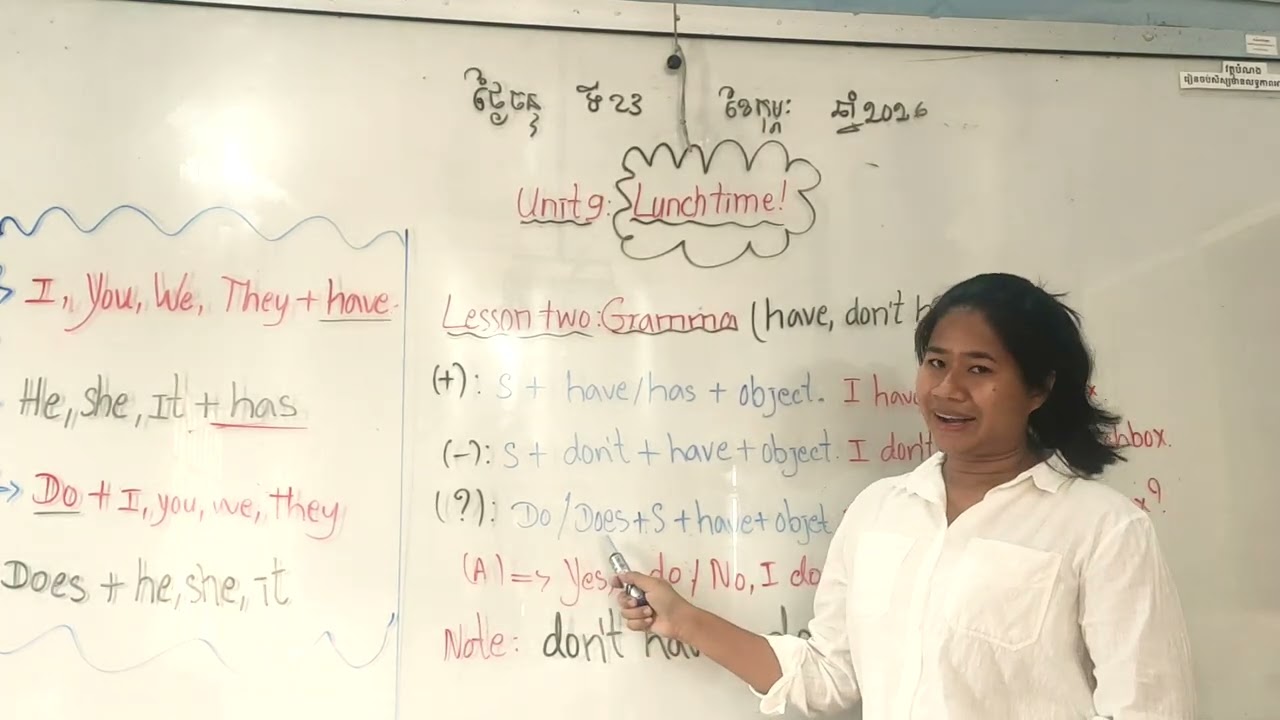 ថ្ងៃចន្ទ ទី 23 ខែកុម្ភៈ ឆ្នាំ 2026
វត្ថុបំណង
Unit 9: Lunchtime!
I, You, We, They + have.
He, she, it + has
Do + I, you, we, they
Does + he, she, it
Lesson two: Gramma (have, don't h
(+): S + have/has + object. I hav
(-): S + don't + have + object. I don't hbox.
(?): Do/Does + S + have + objet ?
(A) => Yes, do / No, I do
Note: don't hav do